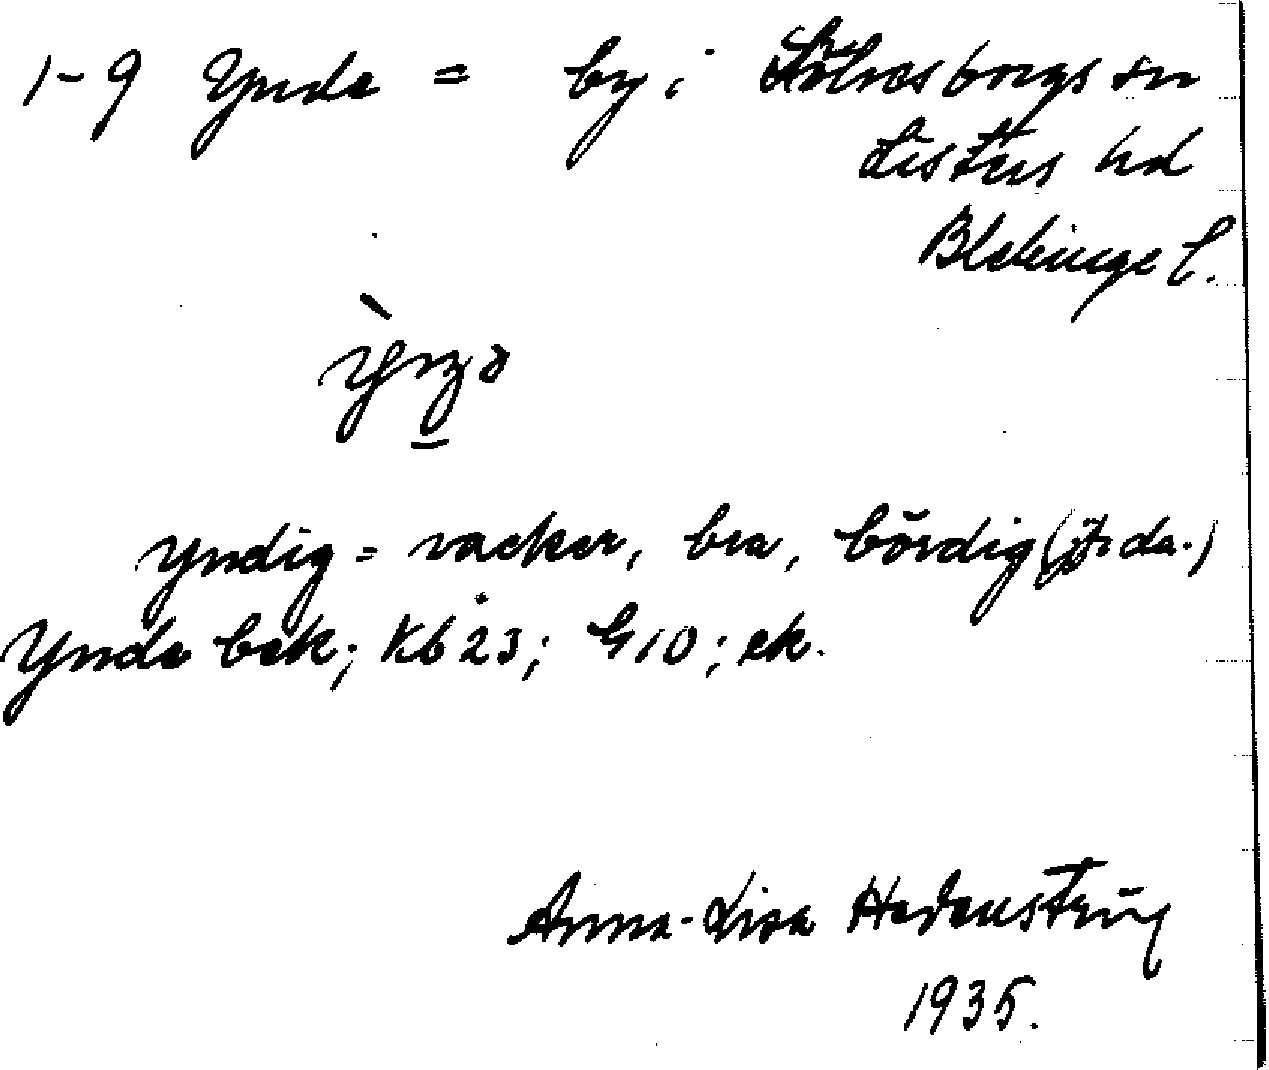 1-9 Ynde = by i Sölvesborgs sn
Listers hd
Blekinge l.
ỳnə
yndig = vacker, bra, bördig (jfr da.)
Ynde bek; Kb 23; G 10; ek.
Anna-Lisa Hedenstierna
1935.